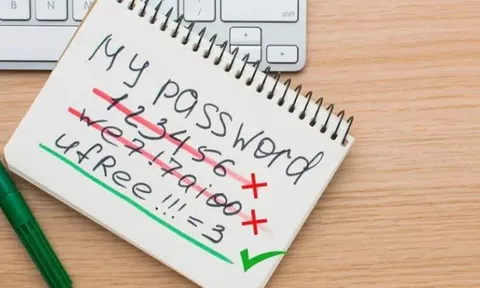 B N M
shift
My password
123456
ufRee!!!=3